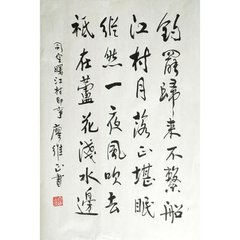 釣罷歸來不繫船
江村月落正堪眠
縱然一夜風吹去
衹在蘆花淺水邊
司空曙江村即事 廖維正書